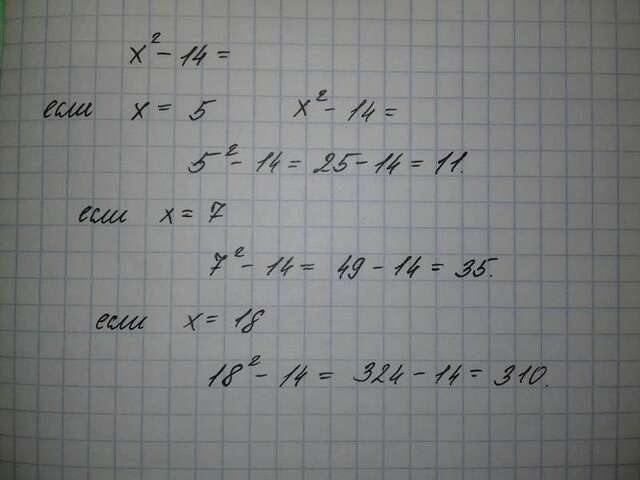 x² - 14 =
если x = 5 x² - 14 =
5² - 14 = 25 - 14 = 11.
если x = 7
7² - 14 = 49 - 14 = 35.
если x = 18
18² - 14 = 324 - 14 = 310.